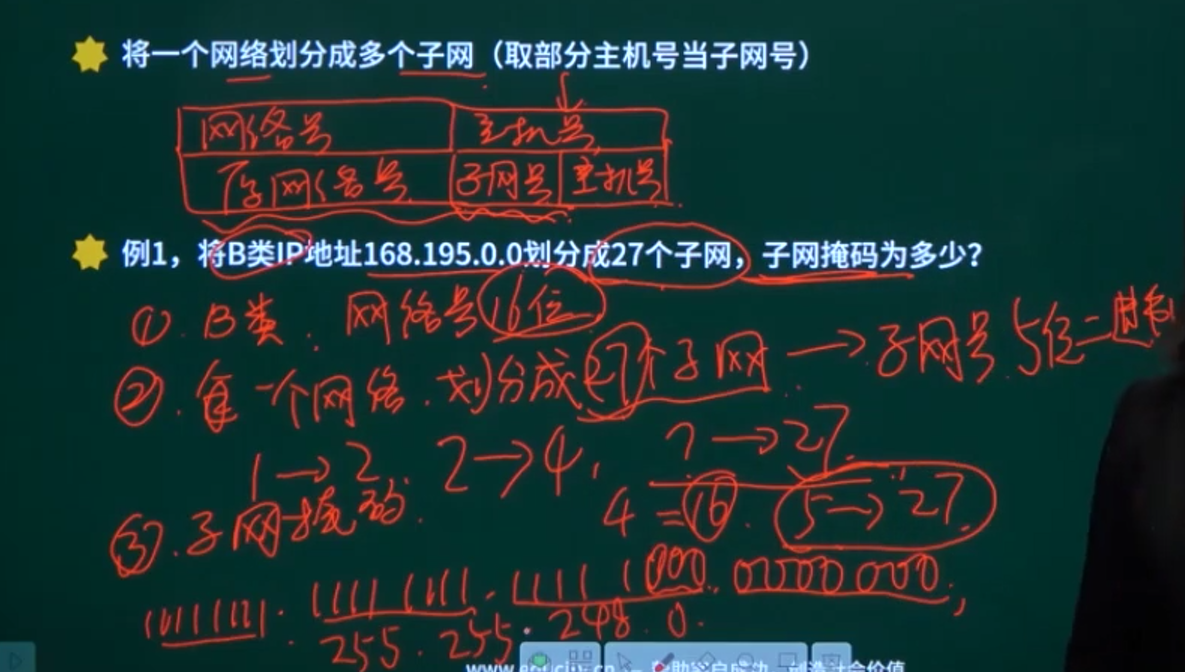 将一个网络划分成多个子网（取部分主机号当子网号）
网络号 主机号
网络号 子网号 主机号
例1，将B类IP地址168.195.0.0划分成27个子网，子网掩码为多少？
①. B类： 网络号16位
②. 一个网络. 划分成27个子网 → 子网号 5位二进制
1→2. 2→4, ?→27.
4 = 16. 5→27.
③. 子网掩码.
11111111. 11111111. 11111000. 00000000,
255. 255. 248. 0.